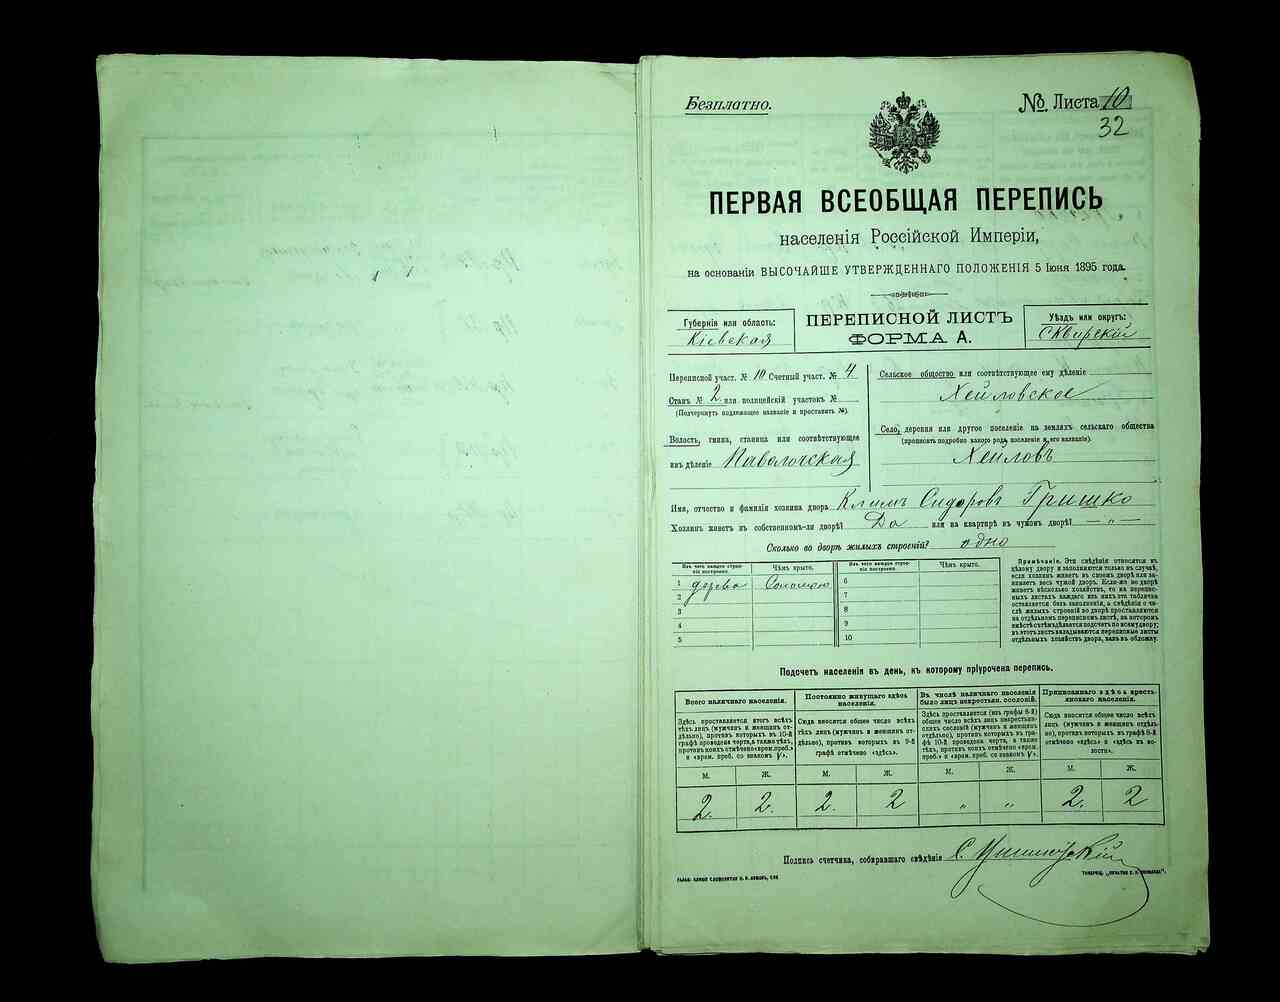 Безплатно.
№ Листа 10
32
ПЕРВАЯ ВСЕОБЩАЯ ПЕРЕПИСЬ
населенія Россійской Имперіи,
на основаніи ВЫСОЧАЙШЕ УТВЕРЖДЕННАГО ПОЛОЖЕНІЯ 5 Іюня 1895 года.
Губернія или область:
Кіевская
ПЕРЕПИСНОЙ ЛИСТЪ
ФОРМА А.
Уѣздъ или округъ:
Сквирскій
Переписной участ. № 10 Счетный участ. № 4
Станъ № 2 или полицейскій участокъ №
(Подчеркнуть подлежащее названіе и проставить №).
Волость, гмина, станица или соотвѣтствующее
имъ дѣленіе Паволочская
Сельское общество или соотвѣтствующее ему дѣленіе
Хейловское
Село, деревня или другое поселеніе на земляхъ сельскаго общества
(прописать подробно какого рода поселеніе и его названіе).
Хейловъ
Имя, отчество и фамилія хозяина двора Климъ Сидоровъ Гришко
Хозяинъ живетъ въ собственномъ-ли дворѣ? Да или на квартирѣ въ чужомъ дворѣ? — „ —
Сколько во дворѣ жилыхъ строеній? одно
Изъ чего каждое строеніе построено.
Чѣмъ крыто.
Изъ чего каждое строеніе построено.
Чѣмъ крыто.
1 дерева Соломою 6
2 7
3 8
4 9
5 10
Примѣчаніе. Эти свѣдѣнія относятся къ
цѣлому двору и заполняются только въ случаѣ,
если хозяинъ живетъ въ своемъ дворѣ или занимаетъ
весь чужой дворъ. Если-же во дворѣ
живетъ нѣсколько хозяйствъ, то на переписныхъ
листахъ каждаго изъ нихъ эта табличка
оставляется безъ заполненія, а свѣдѣнія о числѣ
жилыхъ строеній во дворѣ проставляются
на отдѣльномъ переписномъ листѣ, на которомъ
вмѣстѣ съ тѣмъ дѣлается подсчетъ по всему двору;
въ этотъ листъ вкладываются переписные листы
отдѣльныхъ хозяйствъ двора, какъ въ обложку.
Подсчетъ населенія въ день, къ которому пріурочена перепись.
Всего наличнаго населенія.
Здѣсь проставляется итогъ всѣхъ
тѣхъ лицъ (мужчинъ и женщинъ отдѣльно),
противъ которыхъ въ 10-й
графѣ проведена черта, а также тѣхъ,
противъ коихъ отмѣчено «врем. преб.»
и «врем. преб. со знакомъ V».
Постоянно живущаго здѣсь
населенія.
Сюда вносится общее число всѣхъ
тѣхъ лицъ (мужчинъ и женщинъ отдѣльно),
противъ которыхъ въ 9-й
графѣ отмѣчено «здѣсь».
Въ числѣ наличнаго населенія
было лицъ некрестьян. сословій.
Здѣсь проставляется (изъ графы 8-й)
общее число всѣхъ лицъ некрестьянскихъ
сословій (мужчинъ и женщинъ
отдѣльно), противъ которыхъ въ графѣ
10-й проведена черта, а также
противъ которыхъ отмѣчено «врем.
преб.» и «врем. преб. со знакомъ V».
Приписаннаго здѣсь крестьянскаго
населенія.
Сюда вносится общее число тѣхъ
лицъ (мужчинъ и женщинъ отдѣльно),
противъ которыхъ въ графѣ 8-й
отмѣчено «здѣсь» и «здѣсь въ волости».
М. Ж. М. Ж. М. Ж. М. Ж.
2. 2. 2. 2 „ „ 2. 2
Подпись счетчика, собиравшаго свѣдѣнія С.